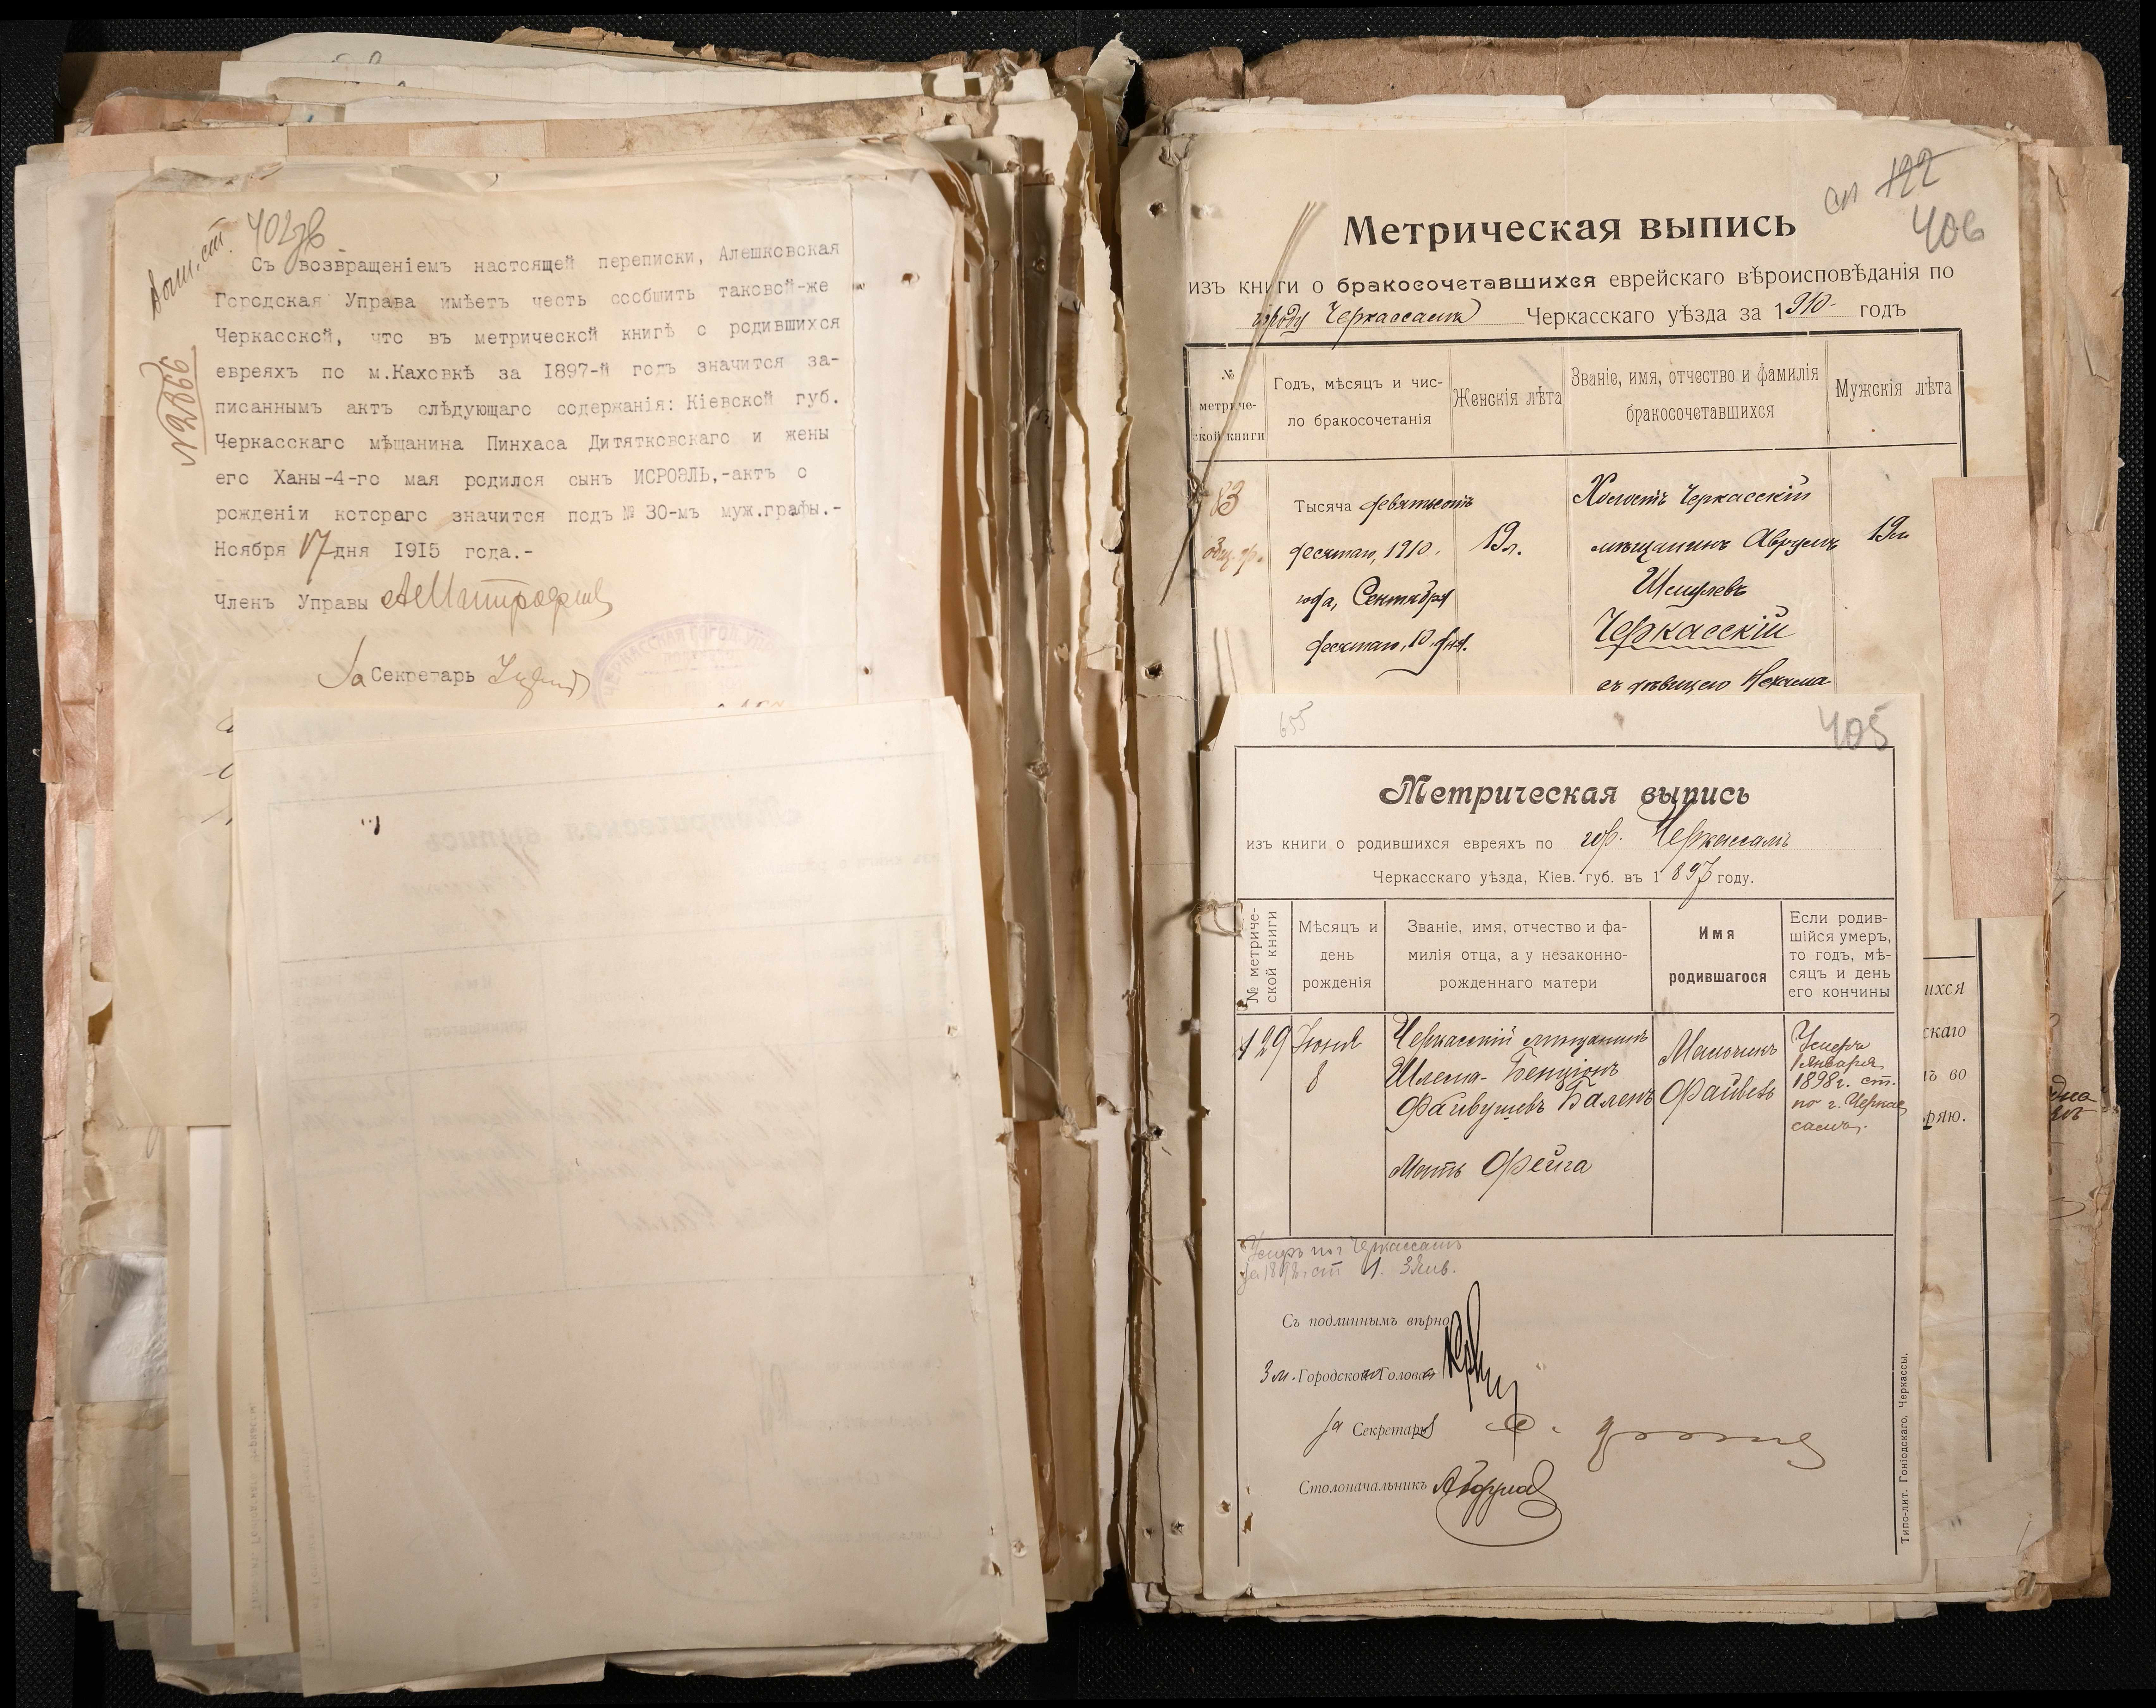 402 об
Съ возвращеніемъ настоящей переписки, Алешковская
Городская Управа имѣетъ честь сообщить таковой-же
Черкасской, что въ метрической книгѣ о родившихся
евреяхъ по м.Каховкѣ за 1897-й годъ значится за-
писаннымъ актъ слѣдующаго содержанія: Кіевской губ.
Черкасскаго мѣщанина Пинхаса Дитятковскаго и жены
его Ханы-4-го мая родился сынъ ИСРОЭЛЬ,-актъ о
рожденіи котораго значится подъ № 30-мъ муж.графы.-
Ноября 17 дня 1915 года.-
Членъ Управы
За Секретарь
№ 2866
ЧЕРКАССКАЯ ГОРОД. УПР
122
406
Метрическая выпись
изъ книги о бракосочетавшихся еврейскаго вѣроисповѣданія по
городу Черкассамъ Черкасскаго уѣзда за 1910 годъ
№ метриче-ской книги
Годъ, мѣсяцъ и чис-ло бракосочетанія
Женскія лѣта
Званіе, имя, отчество и фамилія бракосочетавшихся
Мужскія лѣта
83
Тысяча девятьсотъ
десятаго, 1910.
года, Сентября
десятаго, 10. дня.
19 л.
Холостъ Черкасскій
мѣщанинъ Аврумъ
Шмулевъ
Черкасскій
съ дѣвицею Нехама
19 л.
655
405
Метрическая выпись
изъ книги о родившихся евреяхъ по гор. Черкассамъ
Черкасскаго уѣзда, Кіев. губ. въ 1897 году.
№ метриче-
ской книги
Мѣсяцъ и
день
рожденія
Званіе, имя, отчество и фа-
милія отца, а у незаконно-
рожденнаго матери
Имя
родившагося
Если родив-
шійся умеръ,
то годъ, мѣ-
сяцъ и день
его кончины
129
Іюнь
8
Черкасскій мѣщанинъ
Шлема-Бенціонъ
Файвушевъ Баленъ
Мать Фейга
Мальчикъ
Файвель
Умеръ
1 Января
1898 г. ст.
по г. Черкас
самъ.
Умеръ по г. Черкассамъ
за 1898 г. ст 1. 3 Янв.
Съ подлиннымъ вѣрно
Зм. Городского Головы
За Секретаря
Столоначальникъ
Типо-лит. Гоніодскаго, Черкассы.
ихся
скаго
ъ во
ряю.